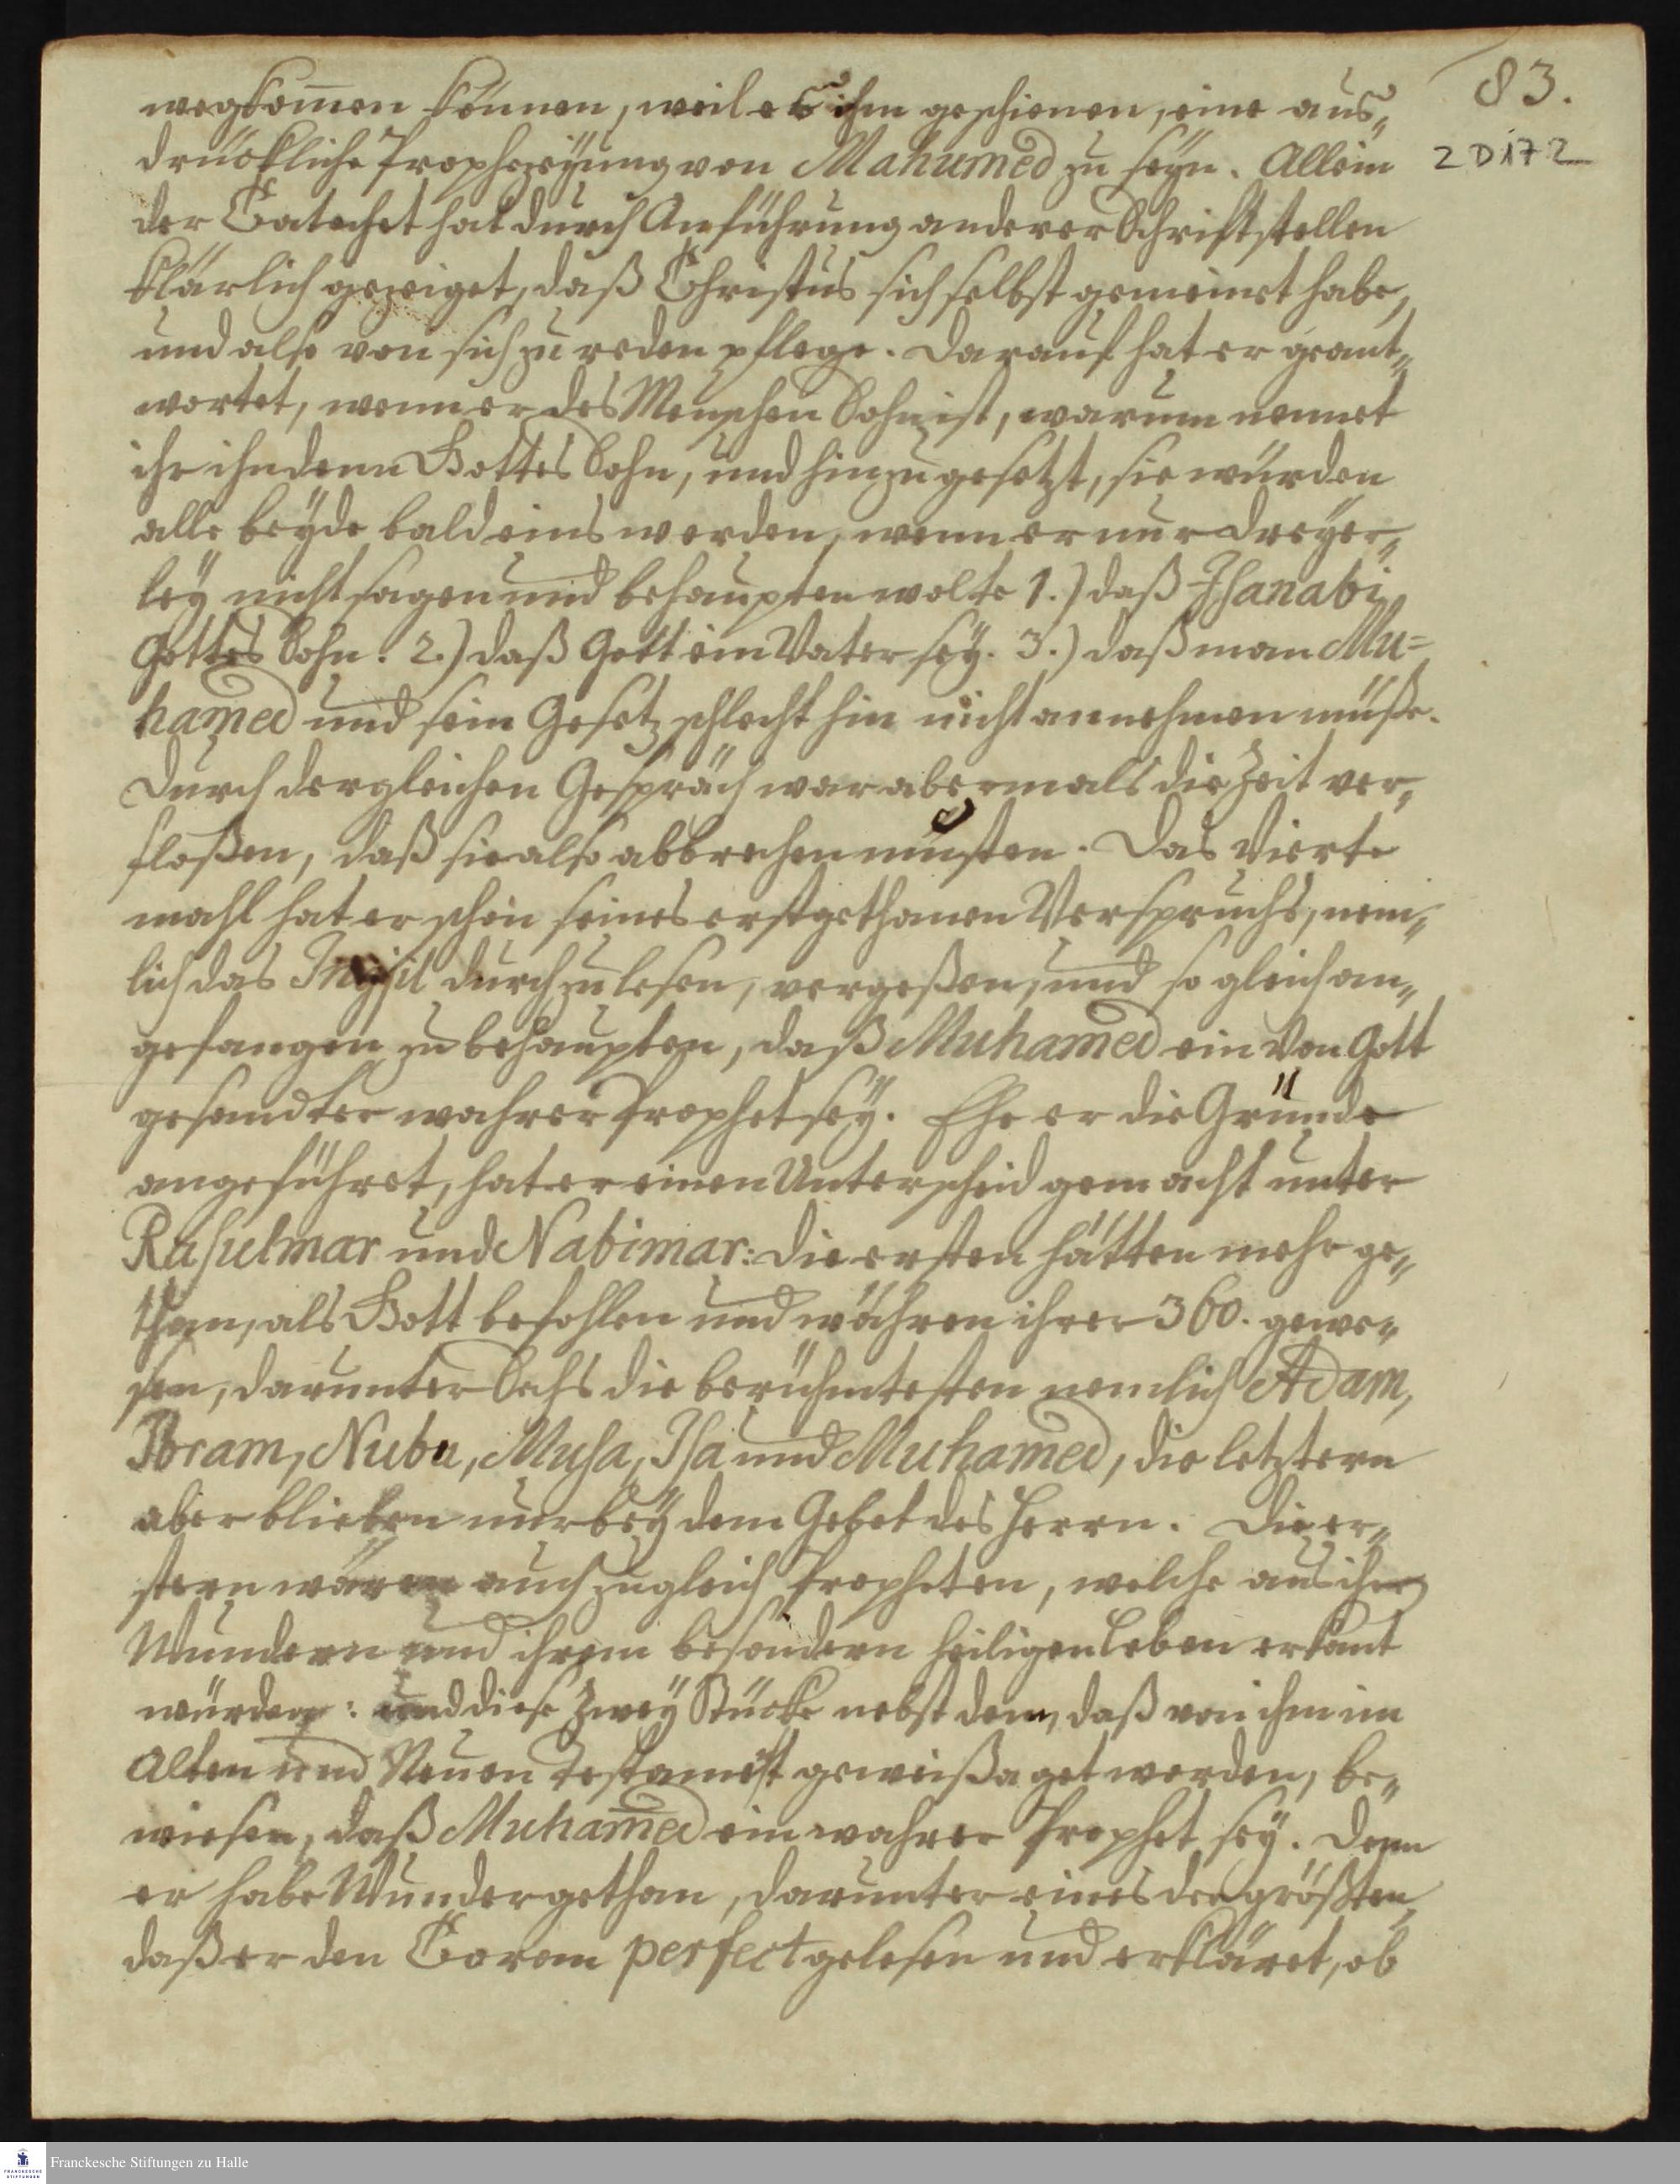 83.
2 D 17 2
wegkom̄en können, weil es ihm geschienen, eine aus„
drückliche Prophezeÿung von Mahumed zu seÿn. Allein
der Catechet hat durch Anführung anderer Schriftstellen
klärlich gezeiget, daß Christus sich selbst gemeinet habe,
und also von sich zu reden pflege. Darauf hat er geant„
wortet, wenn er des Menschen Sohn ist, warum nennet
ihr ihn denn Gottes Sohn, und hinzu gesetzt, sie würden
alle beÿde bald eins werden, wenn er nur dreÿer„
leÿ nicht sagen und behaupten wolte 1.) daß Isanabi
Gottes Sohn. 2.) daß Gott ein Vater seÿ. 3.) daß man Mu=
hamed und sein Gesetz schlecht hin nicht annehmen müße.
Durch dergleichen Gespräch war abermals die Zeit ver„
floßen, daß sie also abbrechen musten. Das vierte
mahl hat er schon seines erstgethanen Verspruchs, nem„
lich das Ingjil durchzulesen, vergeßen, und so gleich an„
gefangen zu behaupten, daß Muhamed ein von Gott
gesandter wahrer Prophet seÿ. Ehe er die Gründe
angeführet, hat er einen Unterscheid gemacht unter
Rasulmar und Nabimar: die ersten hätten mehr ge„
than, als Gott befohlen und währen ihrer 360. gewe„
sen, darunter Sechs die berühmtesten nemlich Adam,
Ibram, Nubu, Musa, Isa und Muhamed, die letztern
aber blieben nur beÿ dem Gebet des Herrn. Die er„
stern wären auch zugleich Propheten, welche aus ihren
Wundern und ihrem besondern heiligen Leben erkant
würden: und diese zweÿ Stücke nebst dem, daß von ihm im
Alten und Neuen Testament geweißaget worden, be„
wiesen, daß Muham̄ed ein wahrer Prophet seÿ. Denn
er habe Wunder gethan, darunter eines der größten,
daß er den Coran perfect gelesen und erkläret, ob
Franckesche Stiftungen zu Halle
FRANCKESCHE
STIFTUNGEN